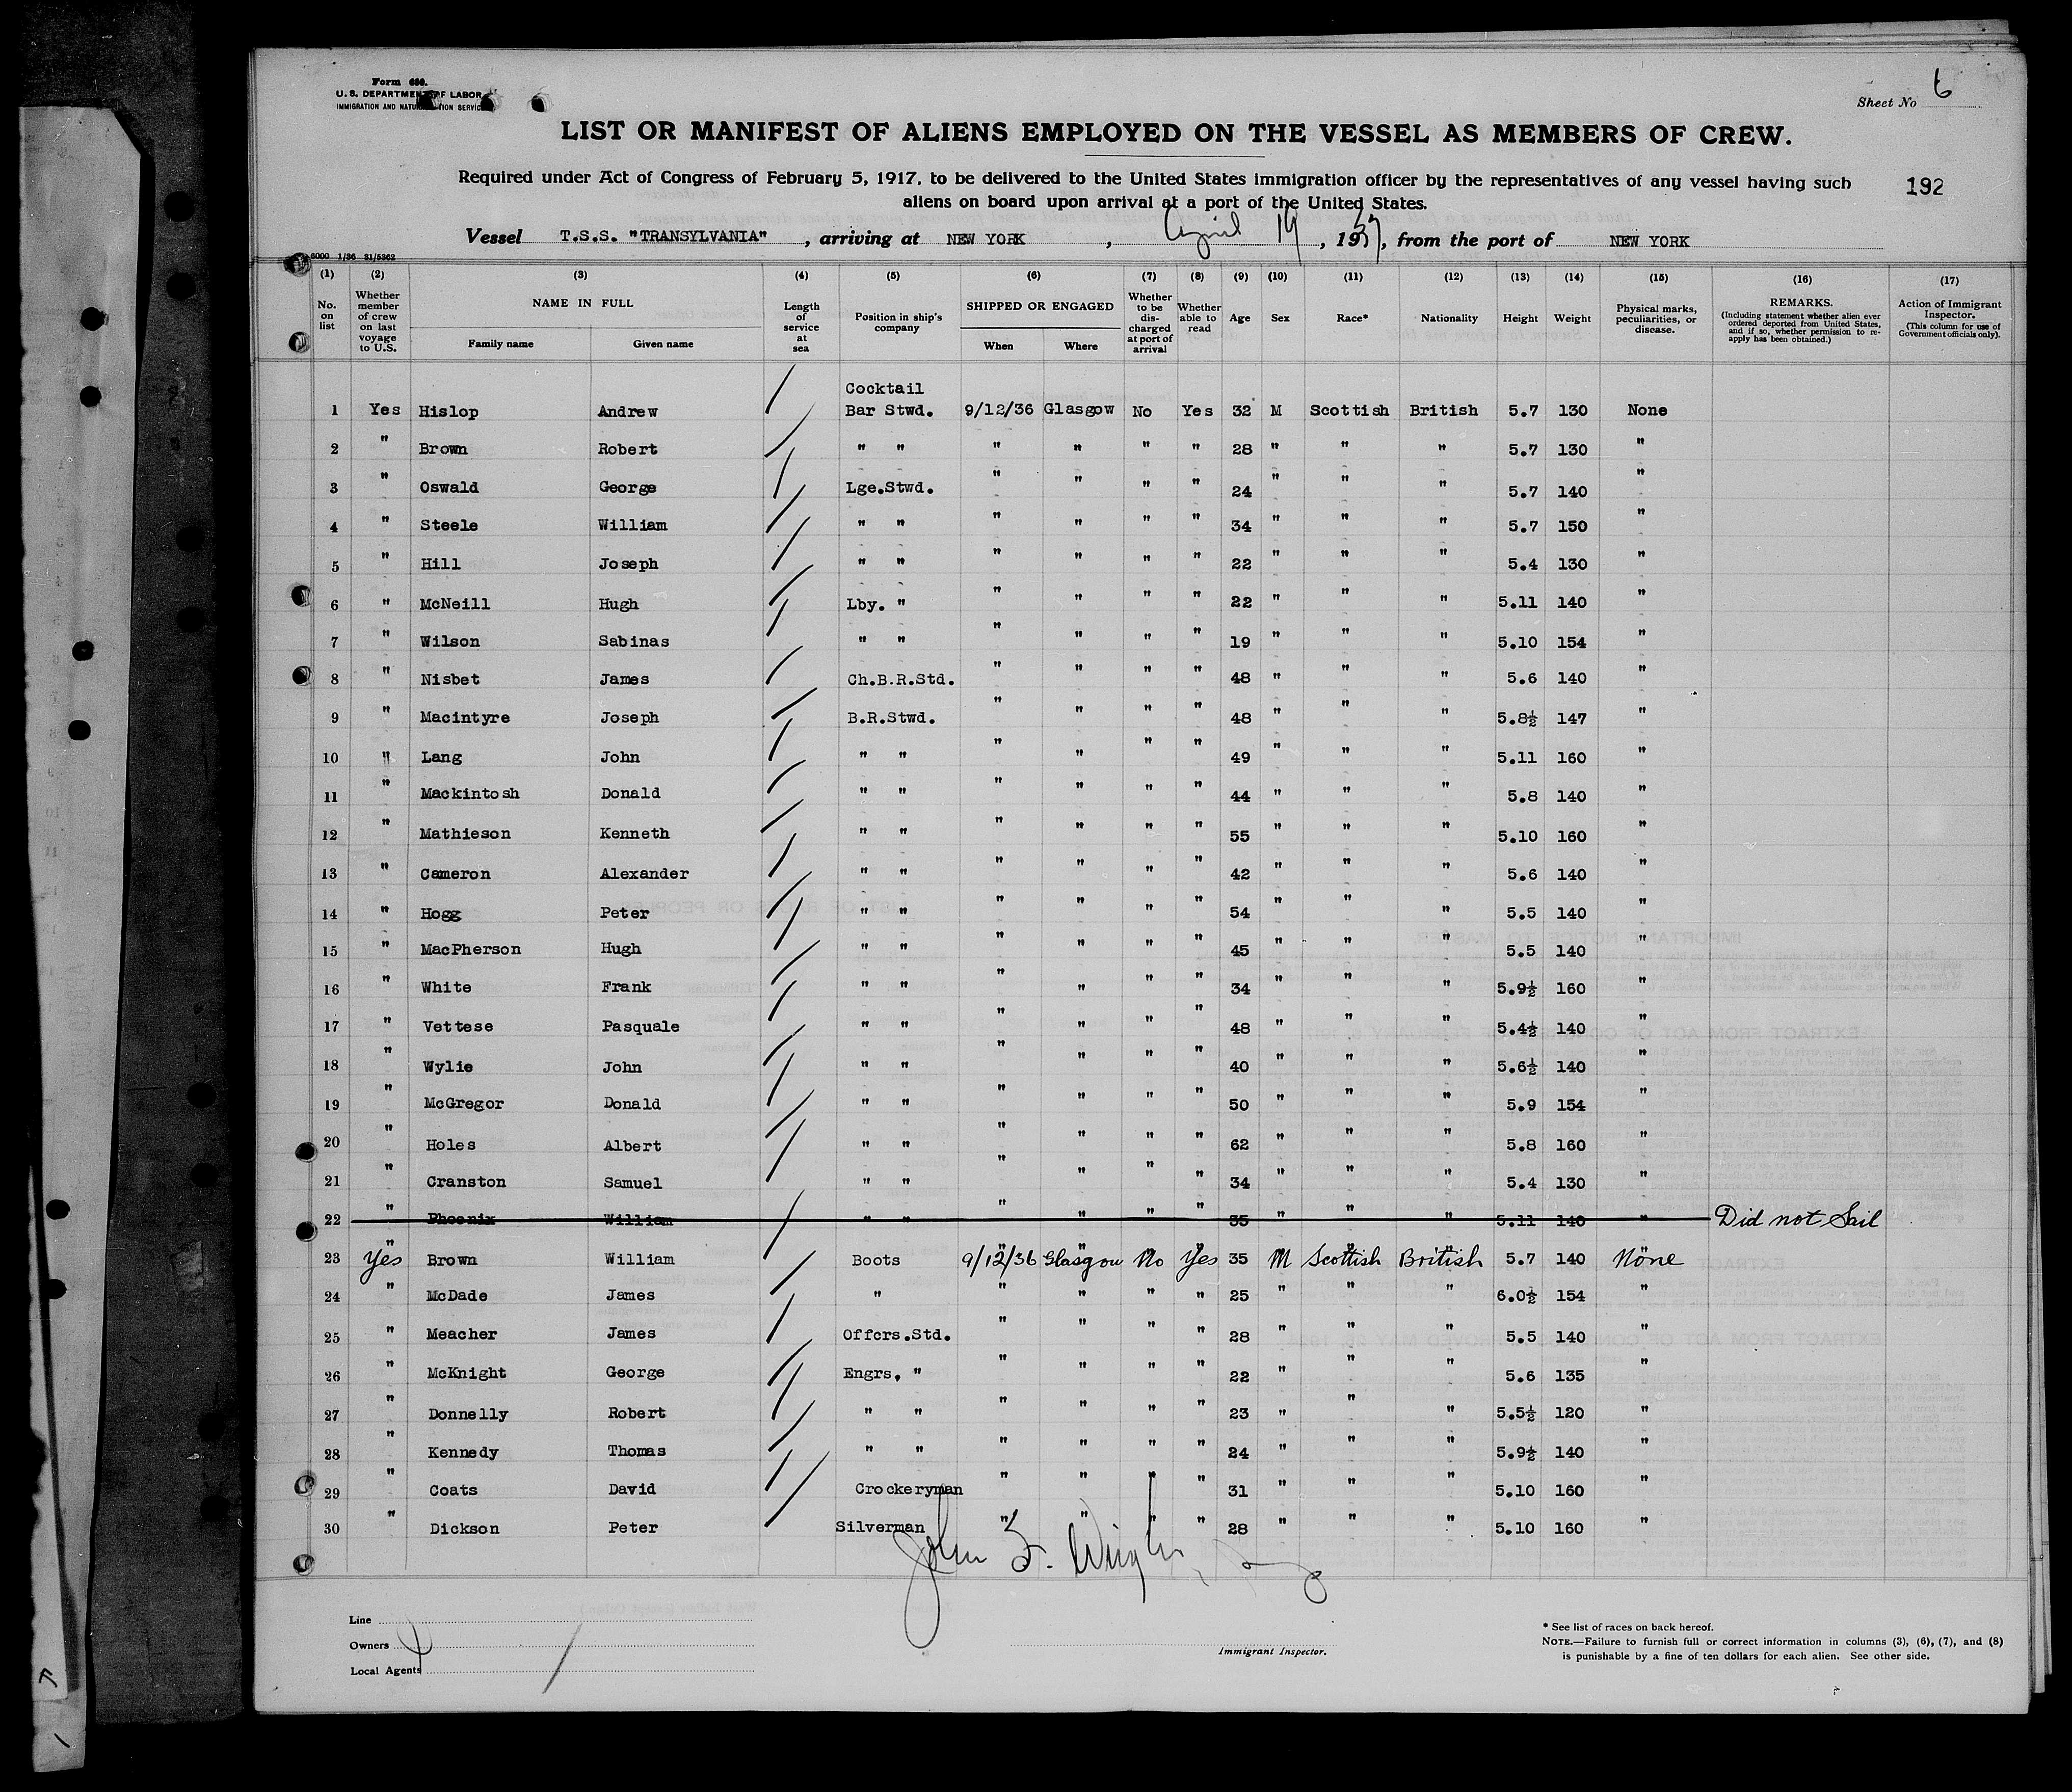 Form 680.
U. S. DEPARTMENT OF LABOR
IMMIGRATION AND NATURALIZATION SERVICE
Sheet No 6
LIST OR MANIFEST OF ALIENS EMPLOYED ON THE VESSEL AS MEMBERS OF CREW.
Required under Act of Congress of February 5, 1917, to be delivered to the United States immigration officer by the representatives of any vessel having such
aliens on board upon arrival at a port of the United States.
192
Vessel T.S.S. "TRANSYLVANIA", arriving at NEW YORK, April 19, 1937, from the port of NEW YORK
6000 1/36 31/5362
(1) (2) (3) (4) (5) (6) (7) (8) (9) (10) (11) (12) (13) (14) (15) (16) (17)
No. on list
Whether member of crew on last voyage to U.S.
NAME IN FULL
Family name Given name
Length of service at sea
Position in ship's company
SHIPPED OR ENGAGED
When Where
Whether to be discharged at port of arrival
Whether able to read
Age
Sex
Race*
Nationality
Height
Weight
Physical marks, peculiarities, or disease.
REMARKS.
(Including statement whether alien ever ordered deported from United States, and if so, whether permission to reapply has been obtained.)
Action of Immigrant Inspector.
(This column for use of Government officials only).
Cocktail
1 Yes Hislop Andrew Bar Stwd. 9/12/36 Glasgow No Yes 32 M Scottish British 5.7 130 None
2 " Brown Robert " " " " " " 28 " " " 5.7 130 "
3 " Oswald George Lge.Stwd. " " " " 24 " " " 5.7 140 "
4 " Steele William " " " " " " 34 " " " 5.7 150 "
5 " Hill Joseph " " " " " " 22 " " " 5.4 130 "
6 " McNeill Hugh Lby. " " " " " 22 " " " 5.11 140 "
7 " Wilson Sabinas " " " " " " 19 " " " 5.10 154 "
8 " Nisbet James Ch.B.R.Std. " " " " 48 " " " 5.6 140 "
9 " Macintyre Joseph B.R.Stwd. " " " " 48 " " " 5.8½ 147 "
10 " Lang John " " " " " " 49 " " " 5.11 160 "
11 " Mackintosh Donald " " " " " " 44 " " " 5.8 140 "
12 " Mathieson Kenneth " " " " " " 55 " " " 5.10 160 "
13 " Cameron Alexander " " " " " " 42 " " " 5.6 140 "
14 " Hogg Peter " " " " " " 54 " " " 5.5 140 "
15 " MacPherson Hugh " " " " " " 45 " " " 5.5 140 "
16 " White Frank " " " " " " 34 " " " 5.9½ 160 "
17 " Vettese Pasquale " " " " " " 48 " " " 5.4½ 140 "
18 " Wylie John " " " " " " 40 " " " 5.6½ 140 "
19 " McGregor Donald " " " " " " 50 " " " 5.9 154 "
20 " Holes Albert " " " " " " 62 " " " 5.8 160 "
21 " Cranston Samuel " " " " " " 34 " " " 5.4 130 "
22 " Phoenix William " " " " " " 35 " " " 5.11 140 " Did not Sail
23 Yes Brown William Boots 9/12/36 Glasgow No Yes 35 M Scottish British 5.7 140 None
24 " McDade James " " " " " 25 " " " 6.0½ 154 "
25 " Meacher James Offcrs.Std. " " " " 28 " " " 5.5 140 "
26 " McKnight George Engrs. " " " " " 22 " " " 5.6 135 "
27 " Donnelly Robert " " " " " " 23 " " " 5.5½ 120 "
28 " Kennedy Thomas " " " " " " 24 " " " 5.9½ 140 "
29 " Coats David Crockeryman " " " " 31 " " " 5.10 160 "
30 " Dickson Peter Silverman " " " " 28 " " " 5.10 160 "
John F. Wright
Line
Owners
Local Agents
Immigrant Inspector.
* See list of races on back hereof.
NOTE.—Failure to furnish full or correct information in columns (3), (6), (7), and (8)
is punishable by a fine of ten dollars for each alien. See other side.